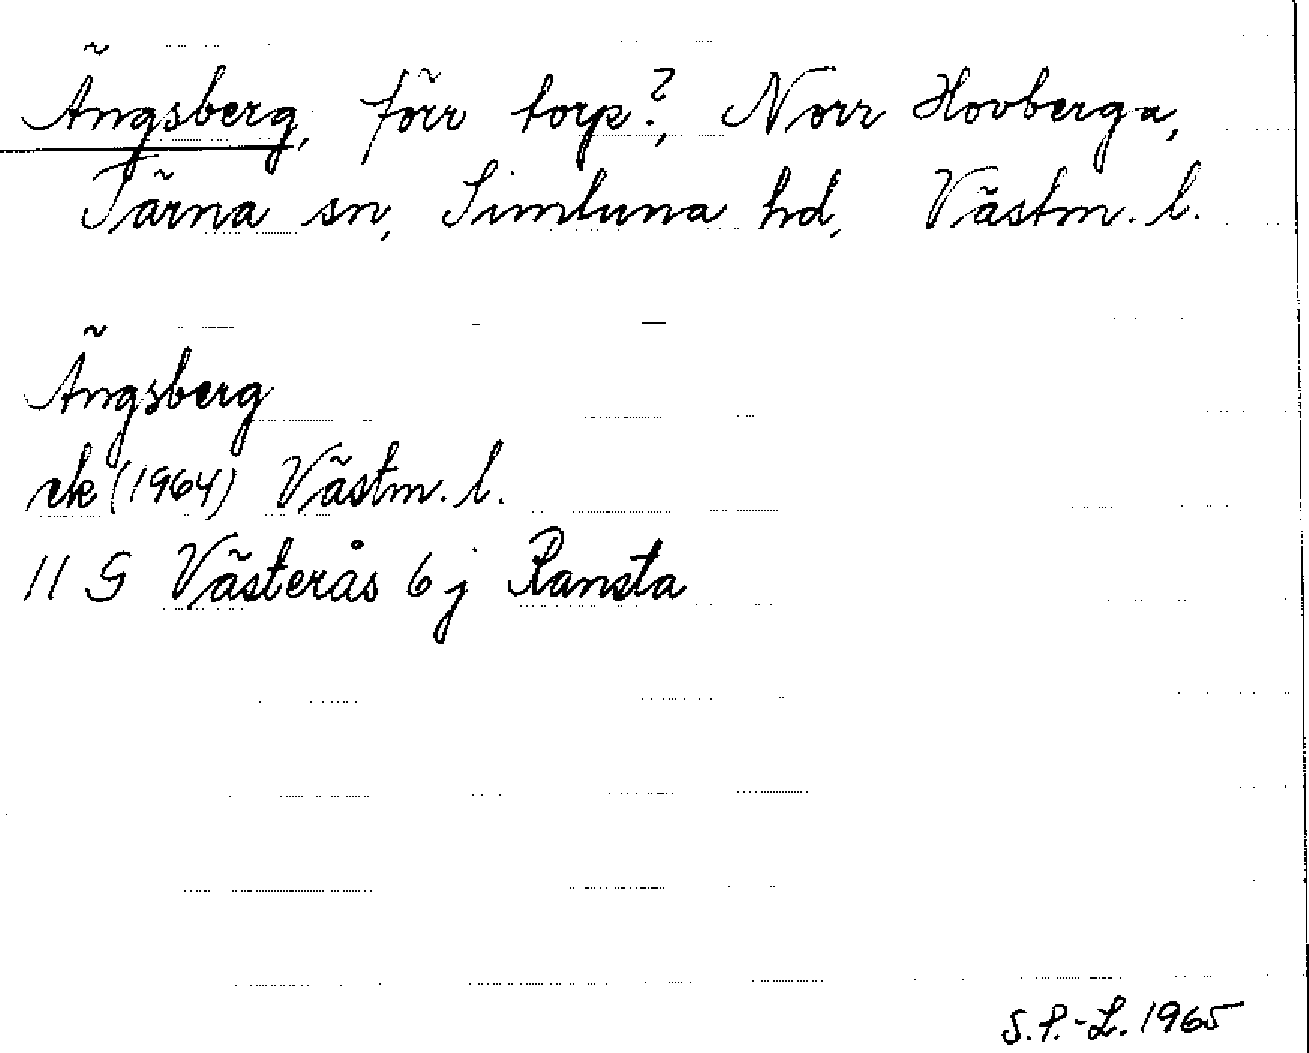 Ängsberg, förr torp?, Norr Hovberga,
Tärna sn, Simtuna hd, Västm. l.
Ängsberg
rek (1964) Västm. l.
11 G Västerås 6 j Ransta
S.P.-L. 1965